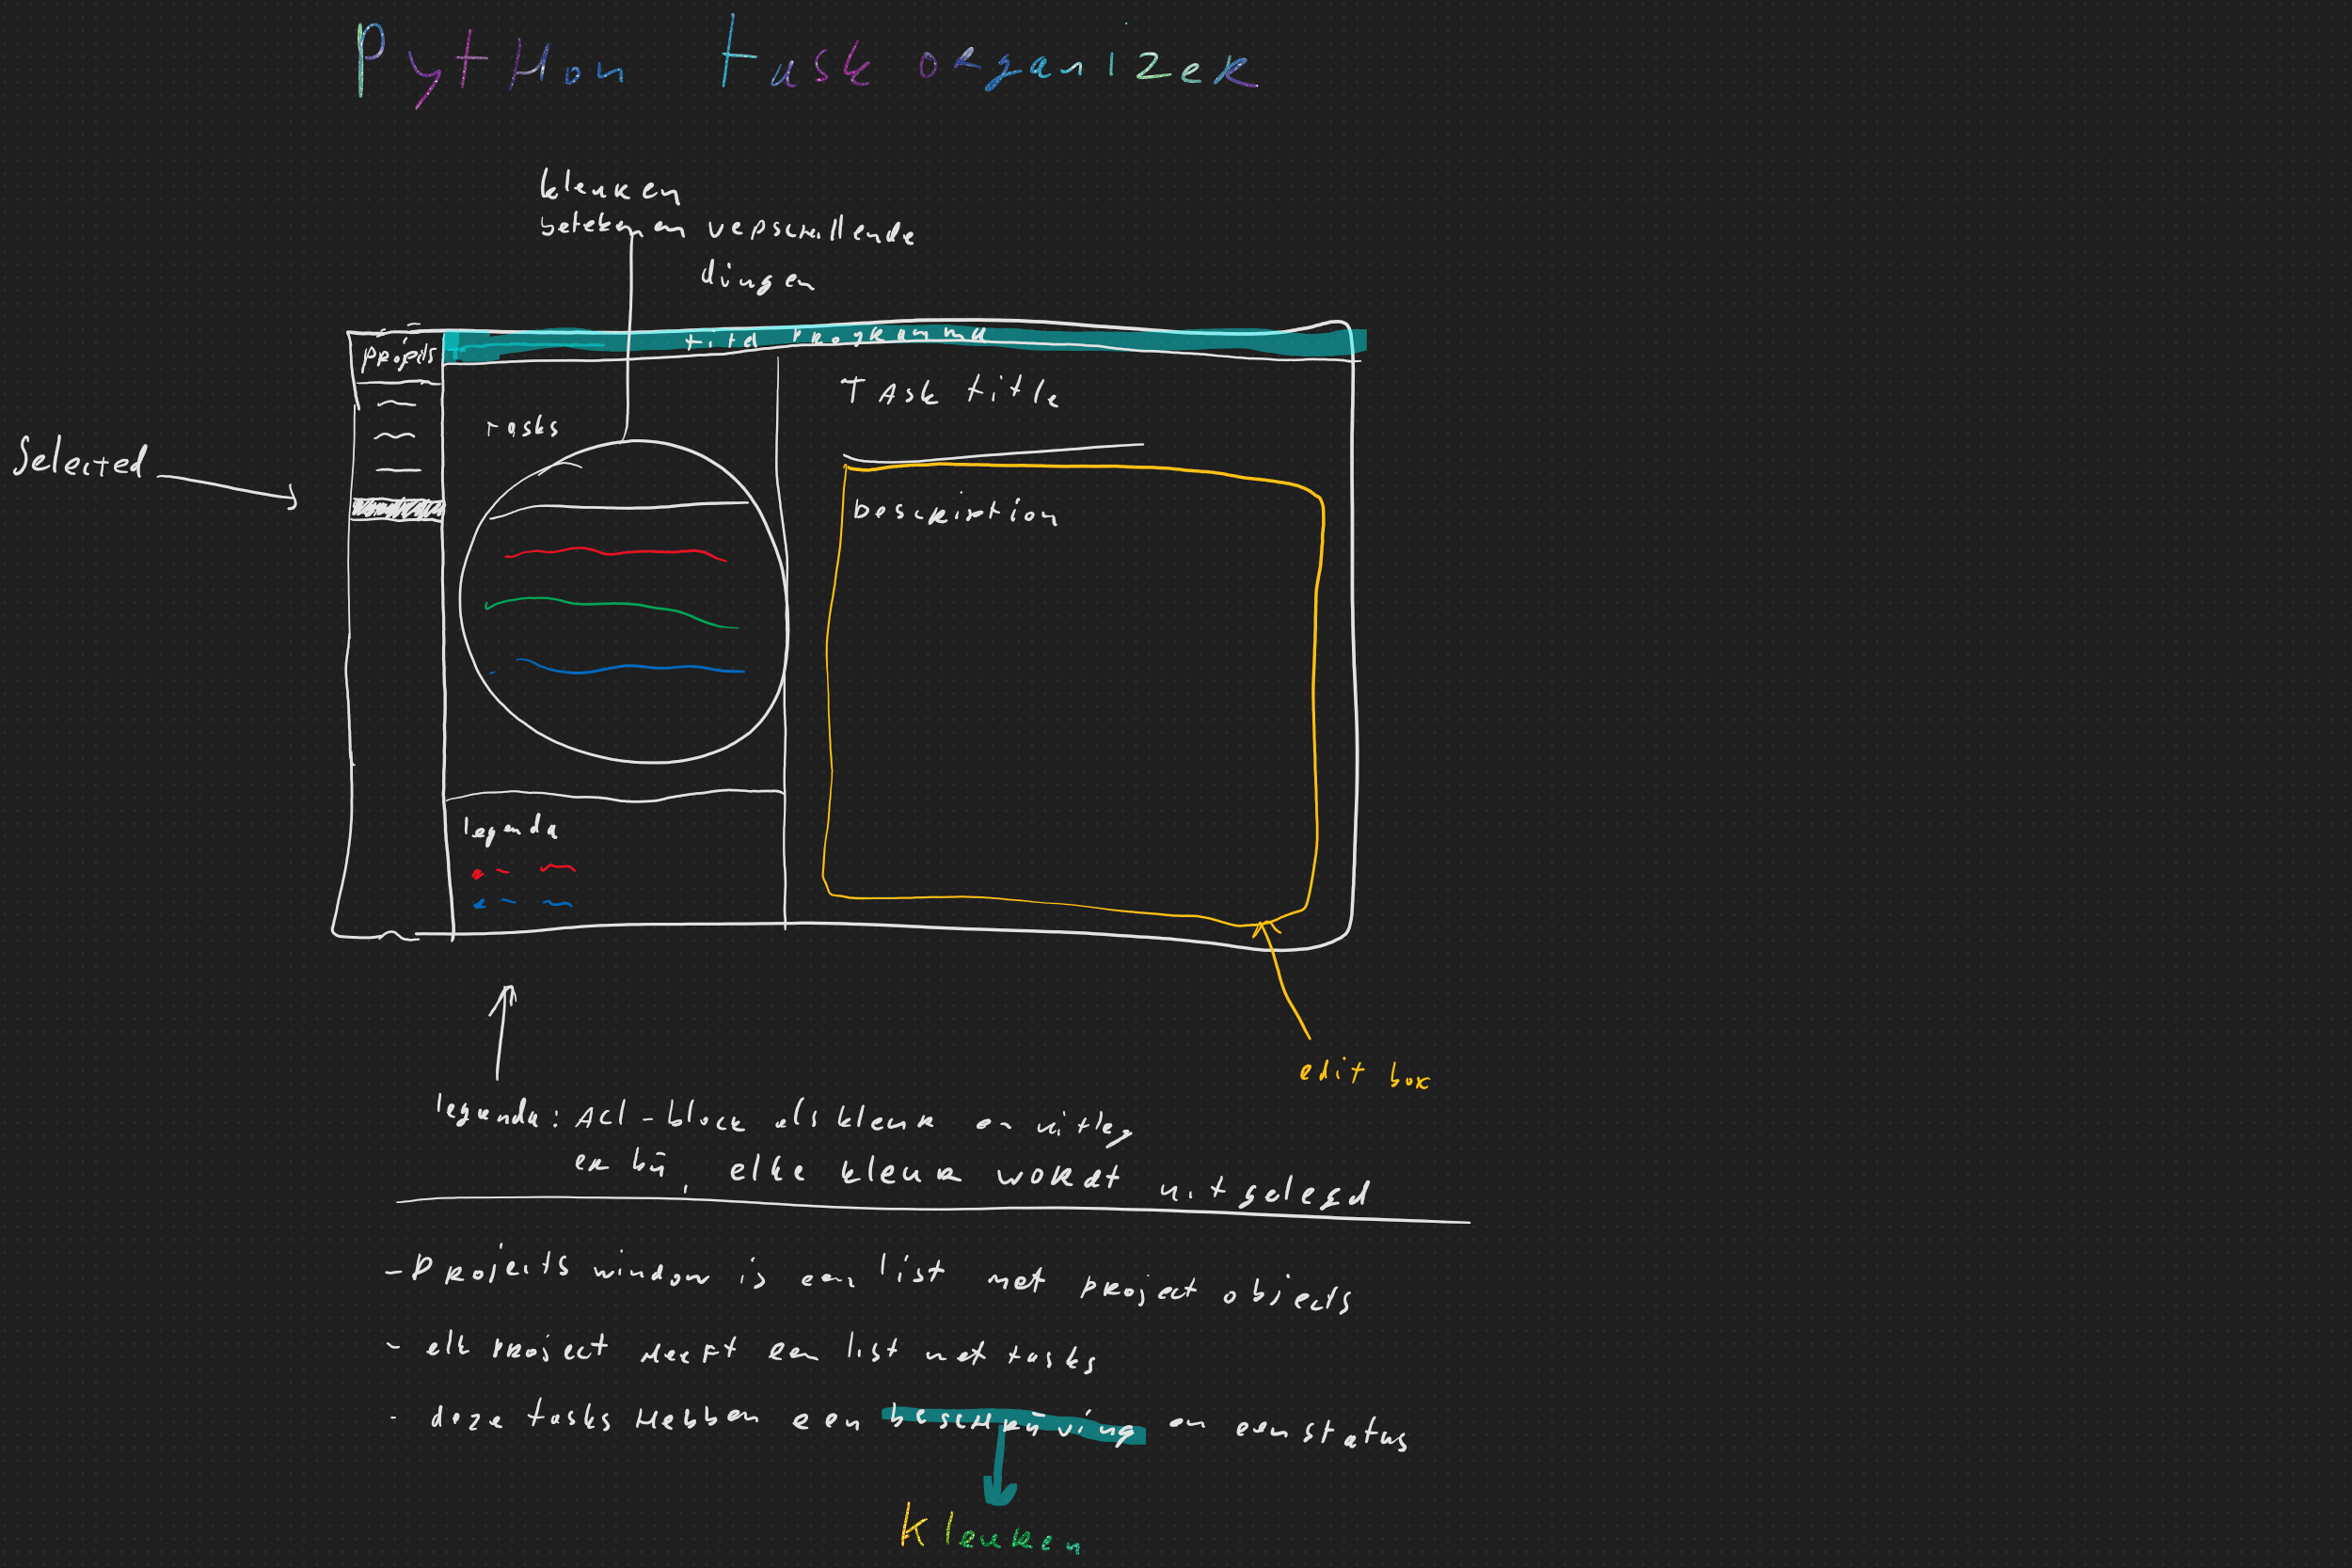 Python task organizer
kleuren
betekenen verschillende
dingen
projects
titel programma
Task title
Tasks
Selected
Description
legenda
edit box
legenda: ACL-block als kleur en uitleg
er bij, elke kleur wordt uitgelegd
- Projects window is een list met project objects
- elk project heeft een list met tasks
- deze tasks hebben een beschrijving en een status
kleuren